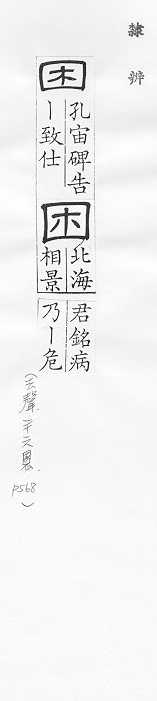 隸辨
困
孔宙碑告
丨致仕
困
北海
相景
君銘病
乃丨危
(去聲.辛之恩.
p568)